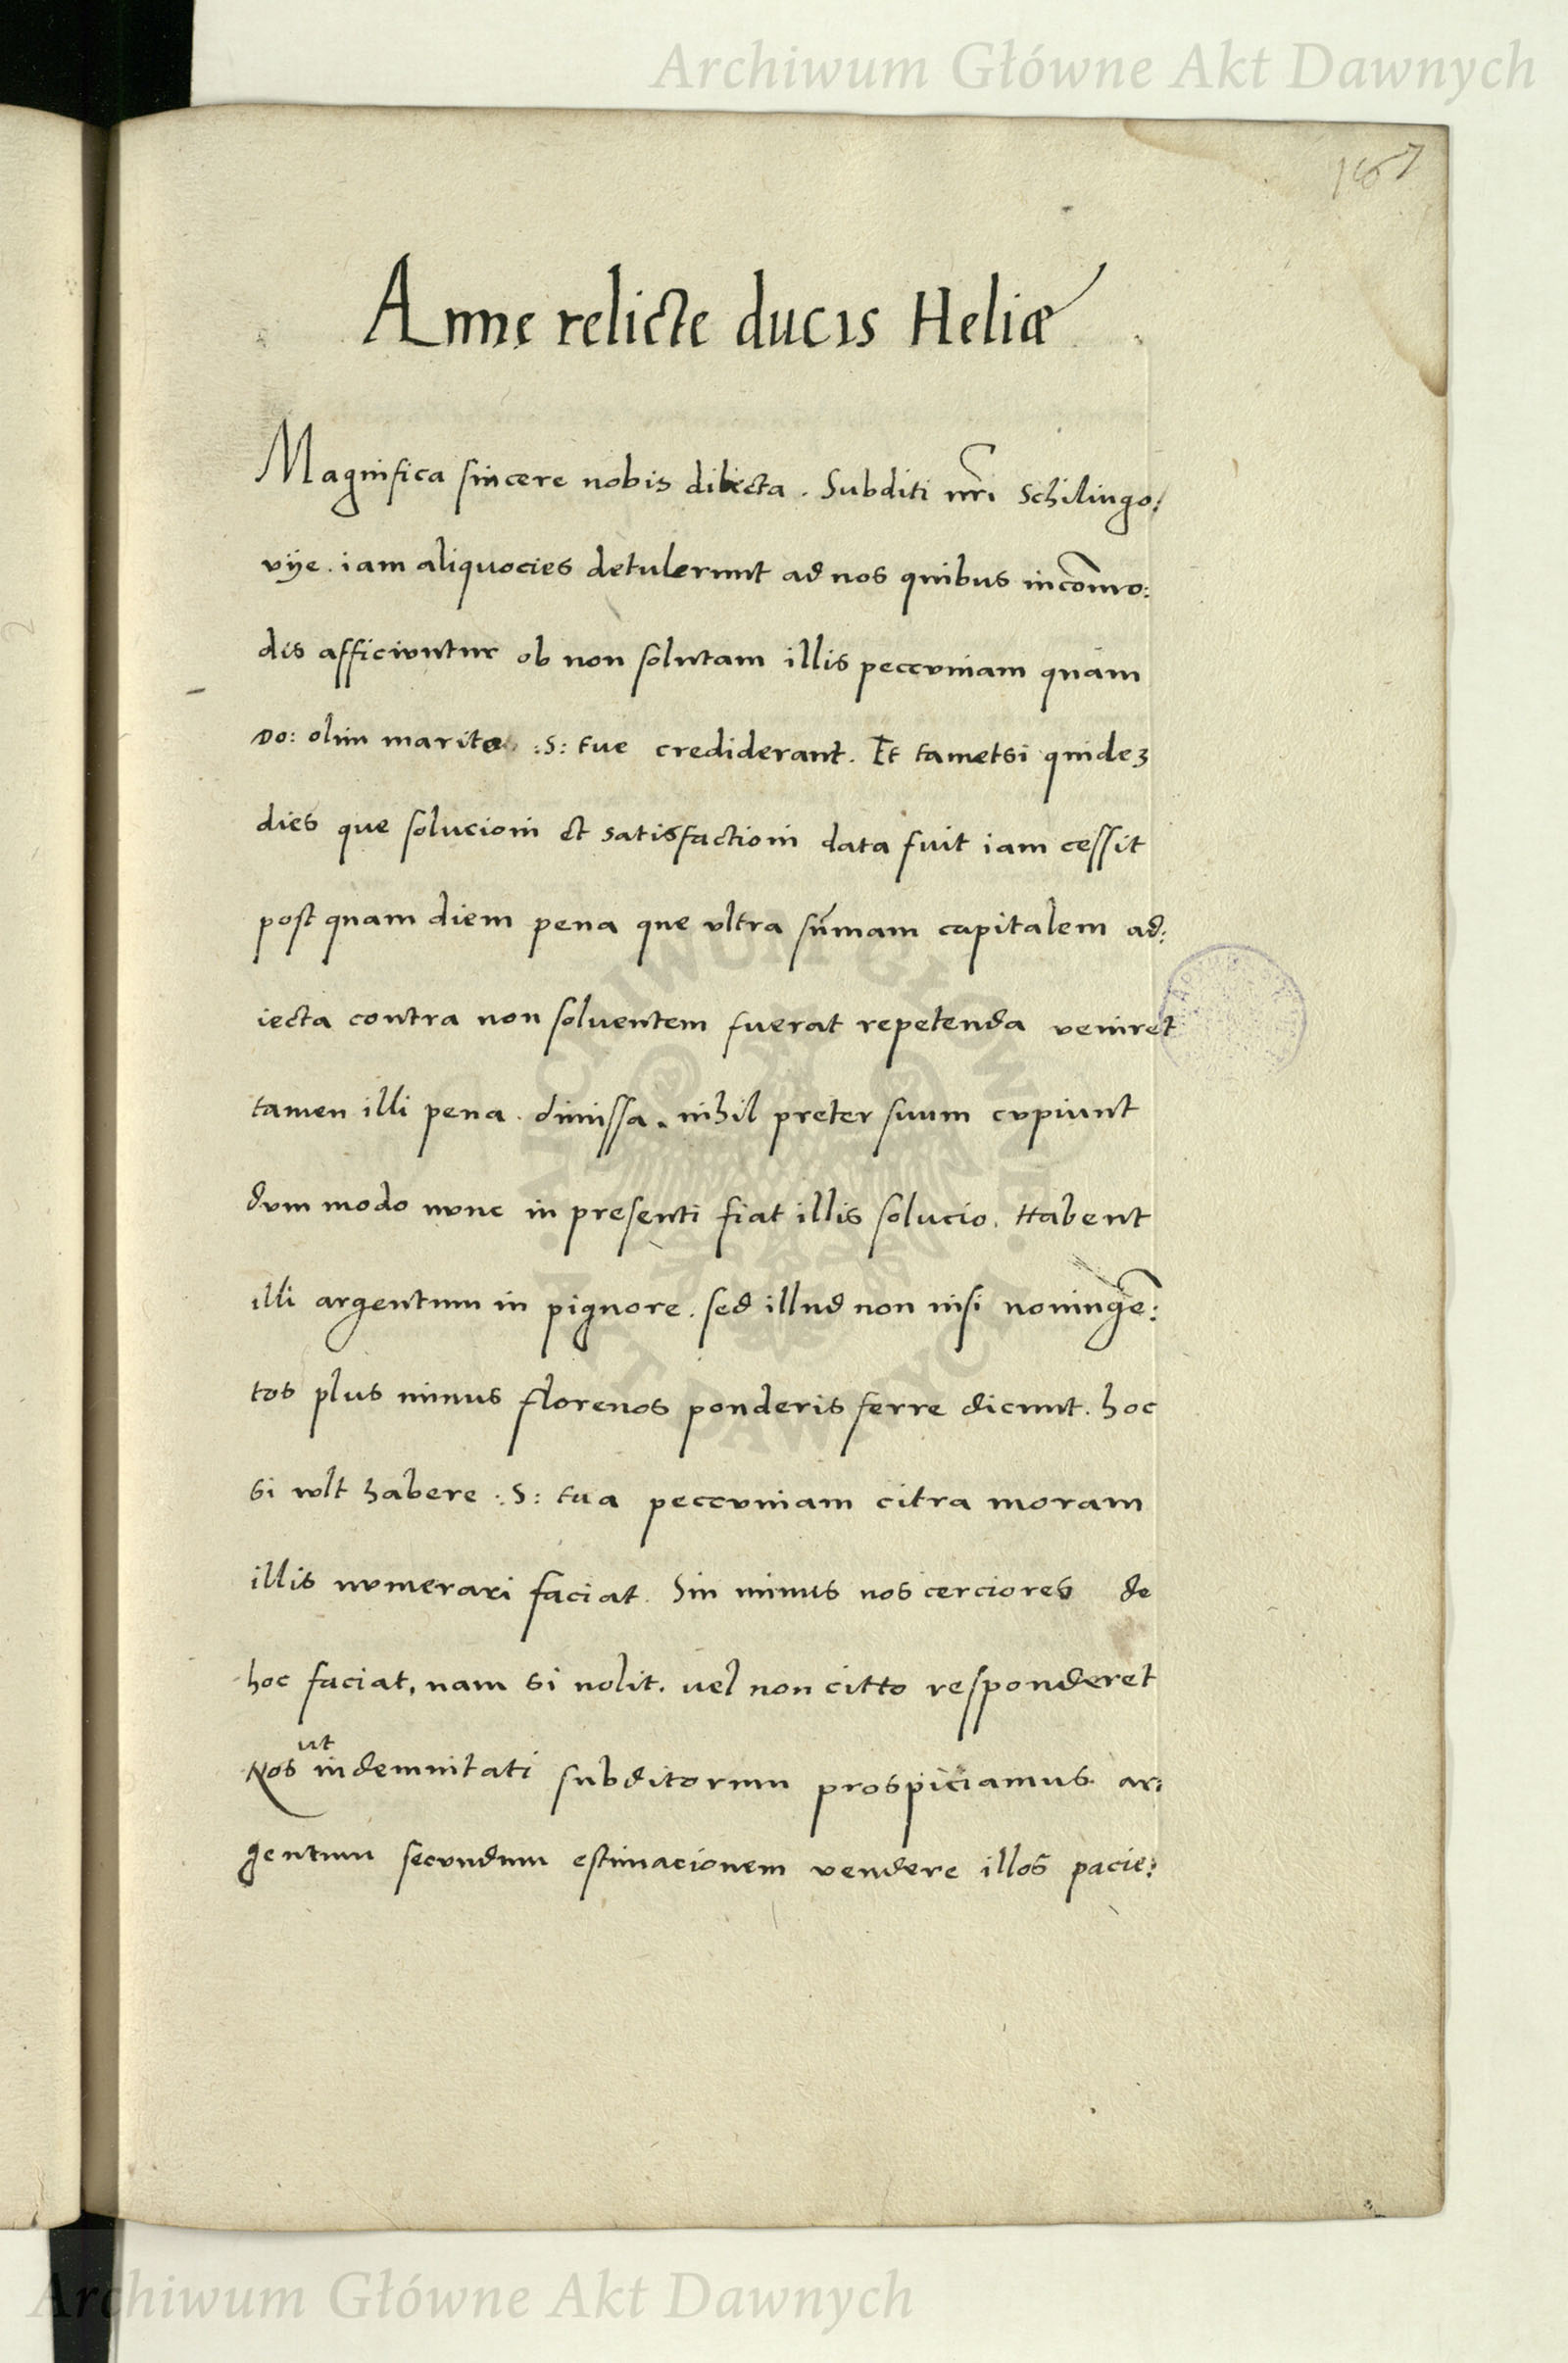 Archiwum Główne Akt Dawnych
167
Anne relicte ducis Heliæ
Magnifica sincere nobis dilecta. Subditi nr̃i Schilingo:
vije. iam aliquocies detulerunt ad nos quibus incõmo:
dis afficiuntur ob non solutam illis peccuniam quam
Do: olim marito :S: tue crediderant. Et tametsi quideʒ
dies que solucioni et satisfactioni data fuit iam cessit
post quam diem pena que vltra sum̃am capitalem ad:
iecta contra non soluentem fuerat repetenda veniret
tamen illi pena. dimissa. nihil preter suum cupiunt
dum modo nunc in presenti fiat illis solucio. Habent
illi argentum in pignore. sed illud non nisi noningẽ:
tos plus minus florenos ponderis ferre dicunt. hoc
si vult habere :S: tua peccuniam citra moram
illis numerari faciat. Sin minus nos cerciores de
hoc faciat, nam si nolit. vel non citto responderet
Nos ut indemnitati subditorum prospiciamus. ar:
gentum secundum estimacionem vendere illos pacie:
ARCHIWUM GŁÓWNE AKT DAWNYCH
Archiwum Główne Akt Dawnych